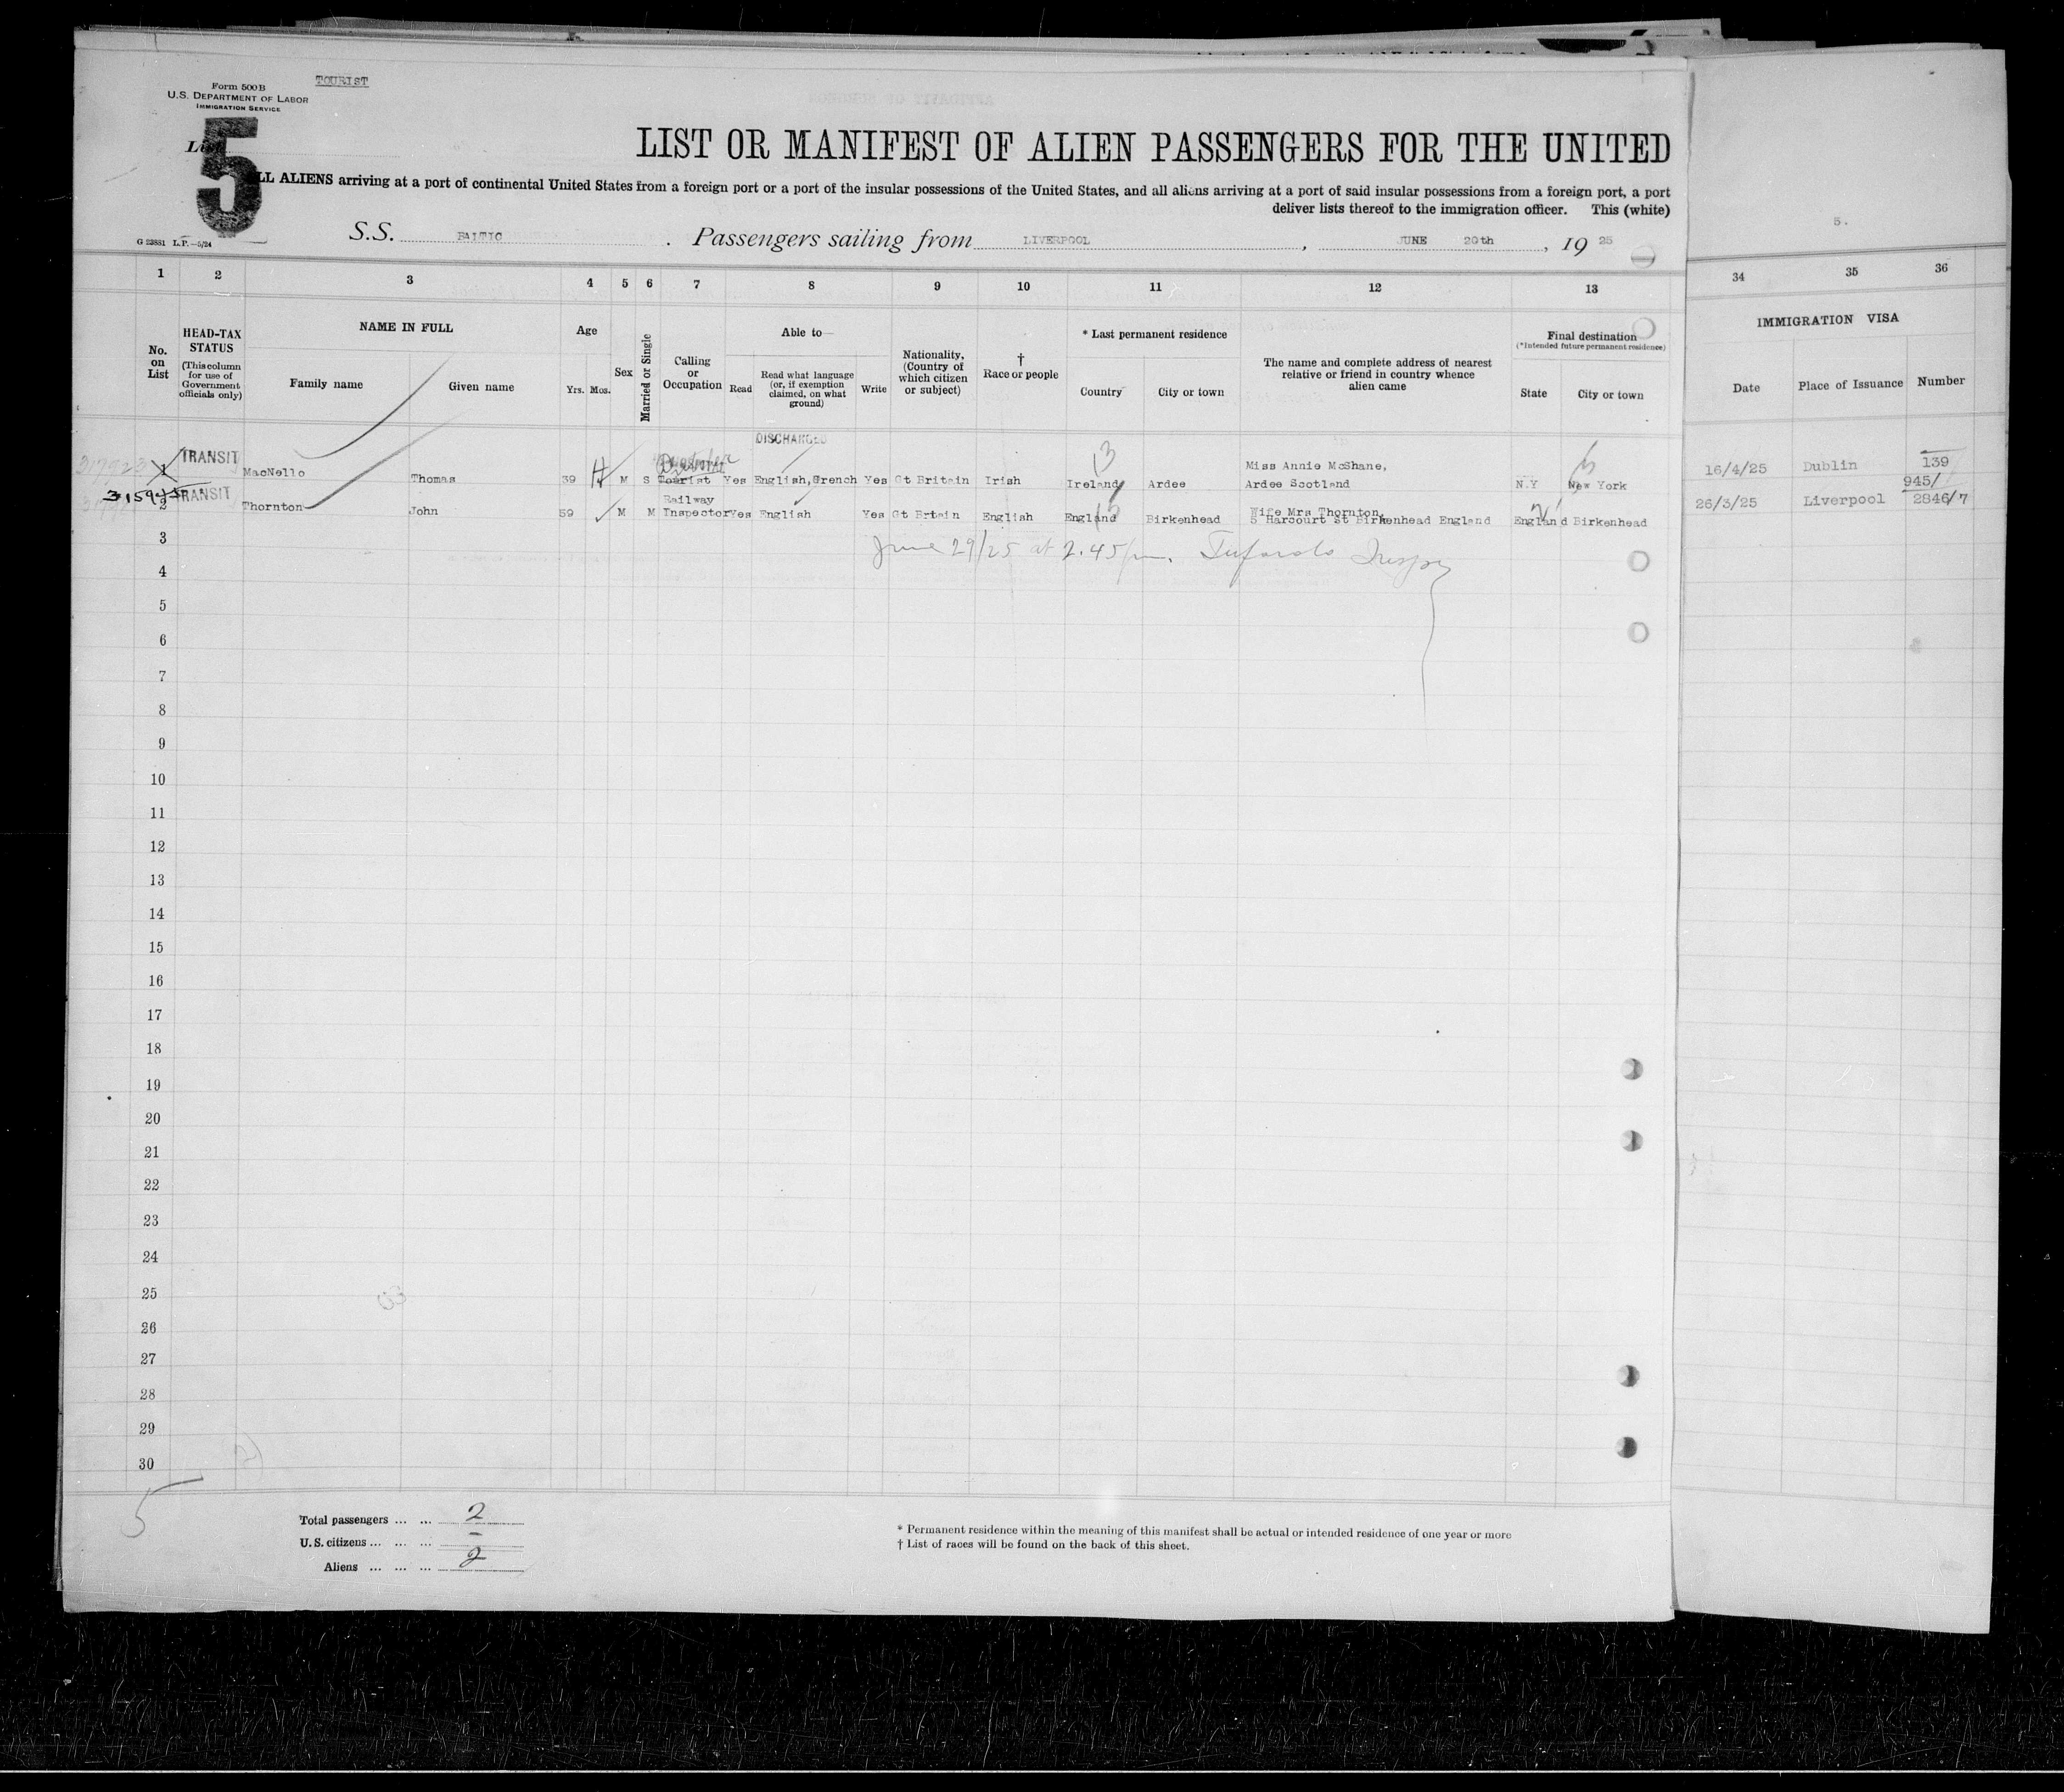 TOURIST
Form 500B
U.S. DEPARTMENT OF LABOR
IMMIGRATION SERVICE
5
LIST OR MANIFEST OF ALIEN PASSENGERS FOR THE UNITED
ALL ALIENS arriving at a port of continental United States from a foreign port or a port of the insular possessions of the United States, and all aliens arriving at a port of said insular possessions from a foreign port, a port
deliver lists thereof to the immigration officer. This (white)
G 23831 L.P.—5/24
S.S. BALTIC . Passengers sailing from LIVERPOOL , JUNE 20th , 19 25
5.
1 2 3 4 5 6 7 8 9 10 11 12 13 34 35 36
No. on List
HEAD-TAX STATUS
(This column for use of Government officials only)
NAME IN FULL
Family name
Given name
Age
Yrs. Mos.
Sex
Married or Single
Calling or Occupation
Able to—
Read
Read what language (or, if exemption claimed, on what ground)
Write
Nationality, (Country of which citizen or subject)
† Race or people
* Last permanent residence
Country
City or town
The name and complete address of nearest relative or friend in country whence alien came
Final destination
(*Intended future permanent residence)
State
City or town
IMMIGRATION VISA
Date
Place of Issuance
Number
DISCHARGED
1 TRANSIT MacNello Thomas 39 M S Tourist Yes English, French Yes Gt Britain Irish Ireland Ardee Miss Annie McShane, Ardee Scotland N.Y New York 16/4/25 Dublin 139
945/
2 TRANSIT Thornton John 59 M M Railway Inspector Yes English Yes Gt Brtain English England Birkenhead Wife Mrs Thornton, 5 Harcourt St Birkenhead England England Birkenhead 26/3/25 Liverpool 2846/7
June 29/25 at 2.45 pm.
3
4
5
6
7
8
9
10
11
12
13
14
15
16
17
18
19
20
21
22
23
24
25
26
27
28
29
30
5
Total passengers ... ... 2
U.S. citizens ... ... ... –
Aliens ... ... ... 2
* Permanent residence within the meaning of this manifest shall be actual or intended residence of one year or more
† List of races will be found on the back of this sheet.